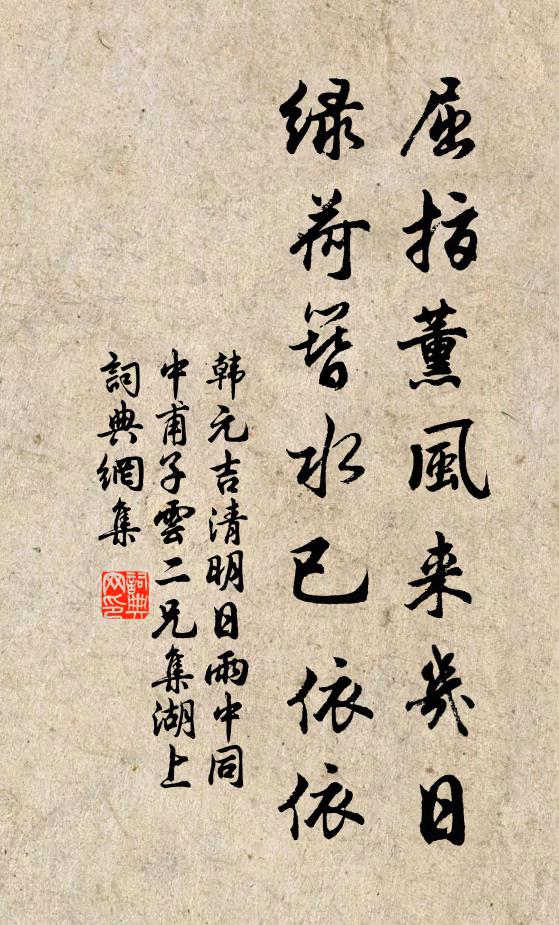 屈指薰風来幾日
緑荷簪水已依依
韩元吉清明日雨中同
中甫子雲二兄集湖上
詞典網集
詞典网印